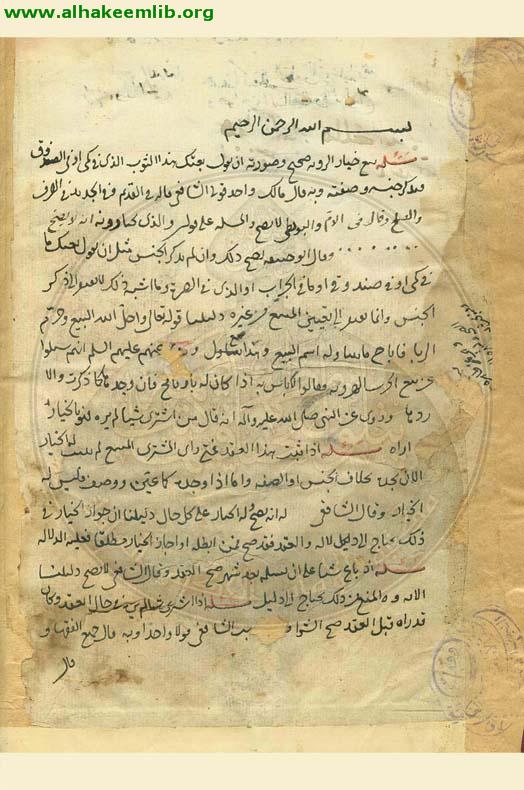 www.alhakeemlib.org
بسم الله الرحمن الرحيم
مسئله بيع خيار الرويه صحيح وصورته ان يقول بعتك هذا الثوب الذى فى كمى او فى الصندوق
ويذكر جنسه وصفته وبه قال مالك واحد قولى الشافعى قاله فى القديم وفى الجديد فى الصرف
والسلم وقال فى الام والبويطى لا يصح والمسئله على قولين والذى يختارونه انه لا يصح
وقال ابو حنيفه يصح ذلك وان لم يذكر الجنس مثل ان يقول بعتك ما
فى كمى او فى صندوقى او ما فى الجراب او الذى فى البصرة وما اشبه ذلك لا يفتقر الى ذكر
الجنس وانما يفتقر الى تعيين المبيع من غيره دليلنا قوله تعالى واحل الله البيع وحرم
الربا فاباح ما يتناوله اسم البيع وهذا بيع متناول وروى عنهم عليهم السلم انهم سئلوا
عن بيع الجرب الهرويه فقالوا لا باس به اذا كان لها بارنامج فان وجدها كما ذكرت والا
ردها وروى عن النبى صلى الله عليه وآله انه قال من اشترى شيئا لم يره فهو بالخيار اذا
اراه مسئله اذا ثبت هذا العقد فمتى راى المشترى المبيع لم يثبت له الخيار
الا ان يجده بخلاف الجنس او الصفه واما اذا وجده كما عين ووصف فليس له
الخيار وقال الشافعى له انه يصح له الخيار على كل حال دليلنا ان جواز الخيار فى
ذلك يحتاج الى دليل لانه والعقد فقد صح فمن ابطله او اجاز الخيار مطلقا فعليه الدلاله
مسئله اذا باع شيئا على ان يسلمه بعد شهر صح العقد وقال الشافعى لا يصح دليلنا
الايه والمنع من ذلك يحتاج الى دليل مسئله اذا اشترى شيئا لم يره فى حال العقد وكان
قد راه قبل العقد صح الشراء وللشافعى قولا واحدا وبه قال جميع الفقهاء و
قال